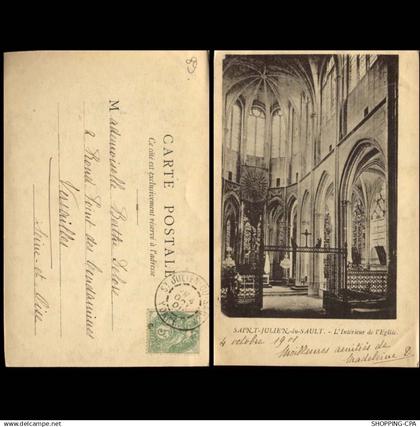 89
CARTE POSTALE
Ce côté est exclusivement réservé à l'adresse
Mademoiselle Berthe
à Rond Point des
Versailles
Seine-et-Oise
ST JULIEN DU SAULT
4
OCT
5
SAINT-JULIEN-du-SAULT. - L'Intérieur de l'Eglise.
4 octobre 1901
Meilleures amitiés de
Madeleine
akpool.com | © SHOPPING-CPA